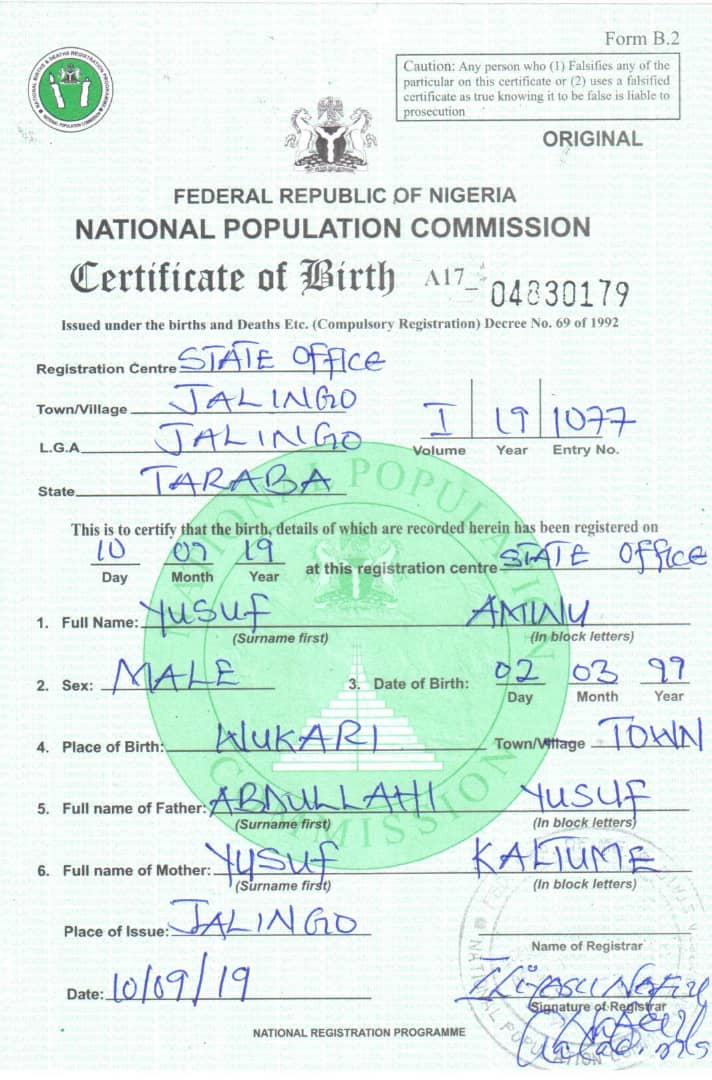 Form B.2
Caution: Any person who (1) Falsifies any of the
particular on this certificate or (2) uses a falsified
certificate as true knowing it to be false is liable to
prosecution
NATIONAL BIRTHS & DEATHS REGISTRATION PROGRAMME
NATIONAL POPULATION COMMISSION
ORIGINAL
FEDERAL REPUBLIC OF NIGERIA
NATIONAL POPULATION COMMISSION
Certificate of Birth A17_ 04830179
Issued under the births and Deaths Etc. (Compulsory Registration) Decree No. 69 of 1992
Registration Centre STATE OFFICE
Town/Village JALINGO
L.G.A. JALINGO
I 19 1077
Volume Year Entry No.
State TARABA
NATIONAL POPULATION COMMISSION
This is to certify that the birth, details of which are recorded herein has been registered on
10 09 19 at this registration centre STATE OFFICE
Day Month Year
1. Full Name: YUSUF AMINU
(Surname first) (In block letters)
2. Sex: MALE 3. Date of Birth: 02 03 99
Day Month Year
4. Place of Birth: WUKARI Town/Village TOWN
5. Full name of Father: ABDULLAHI YUSUF
(Surname first) (In block letters)
6. Full name of Mother: YUSUF KALTUME
(Surname first) (In block letters)
Place of Issue: JALINGO
Name of Registrar
Date: 10/09/19
Signature of Registrar
NATIONAL REGISTRATION PROGRAMME